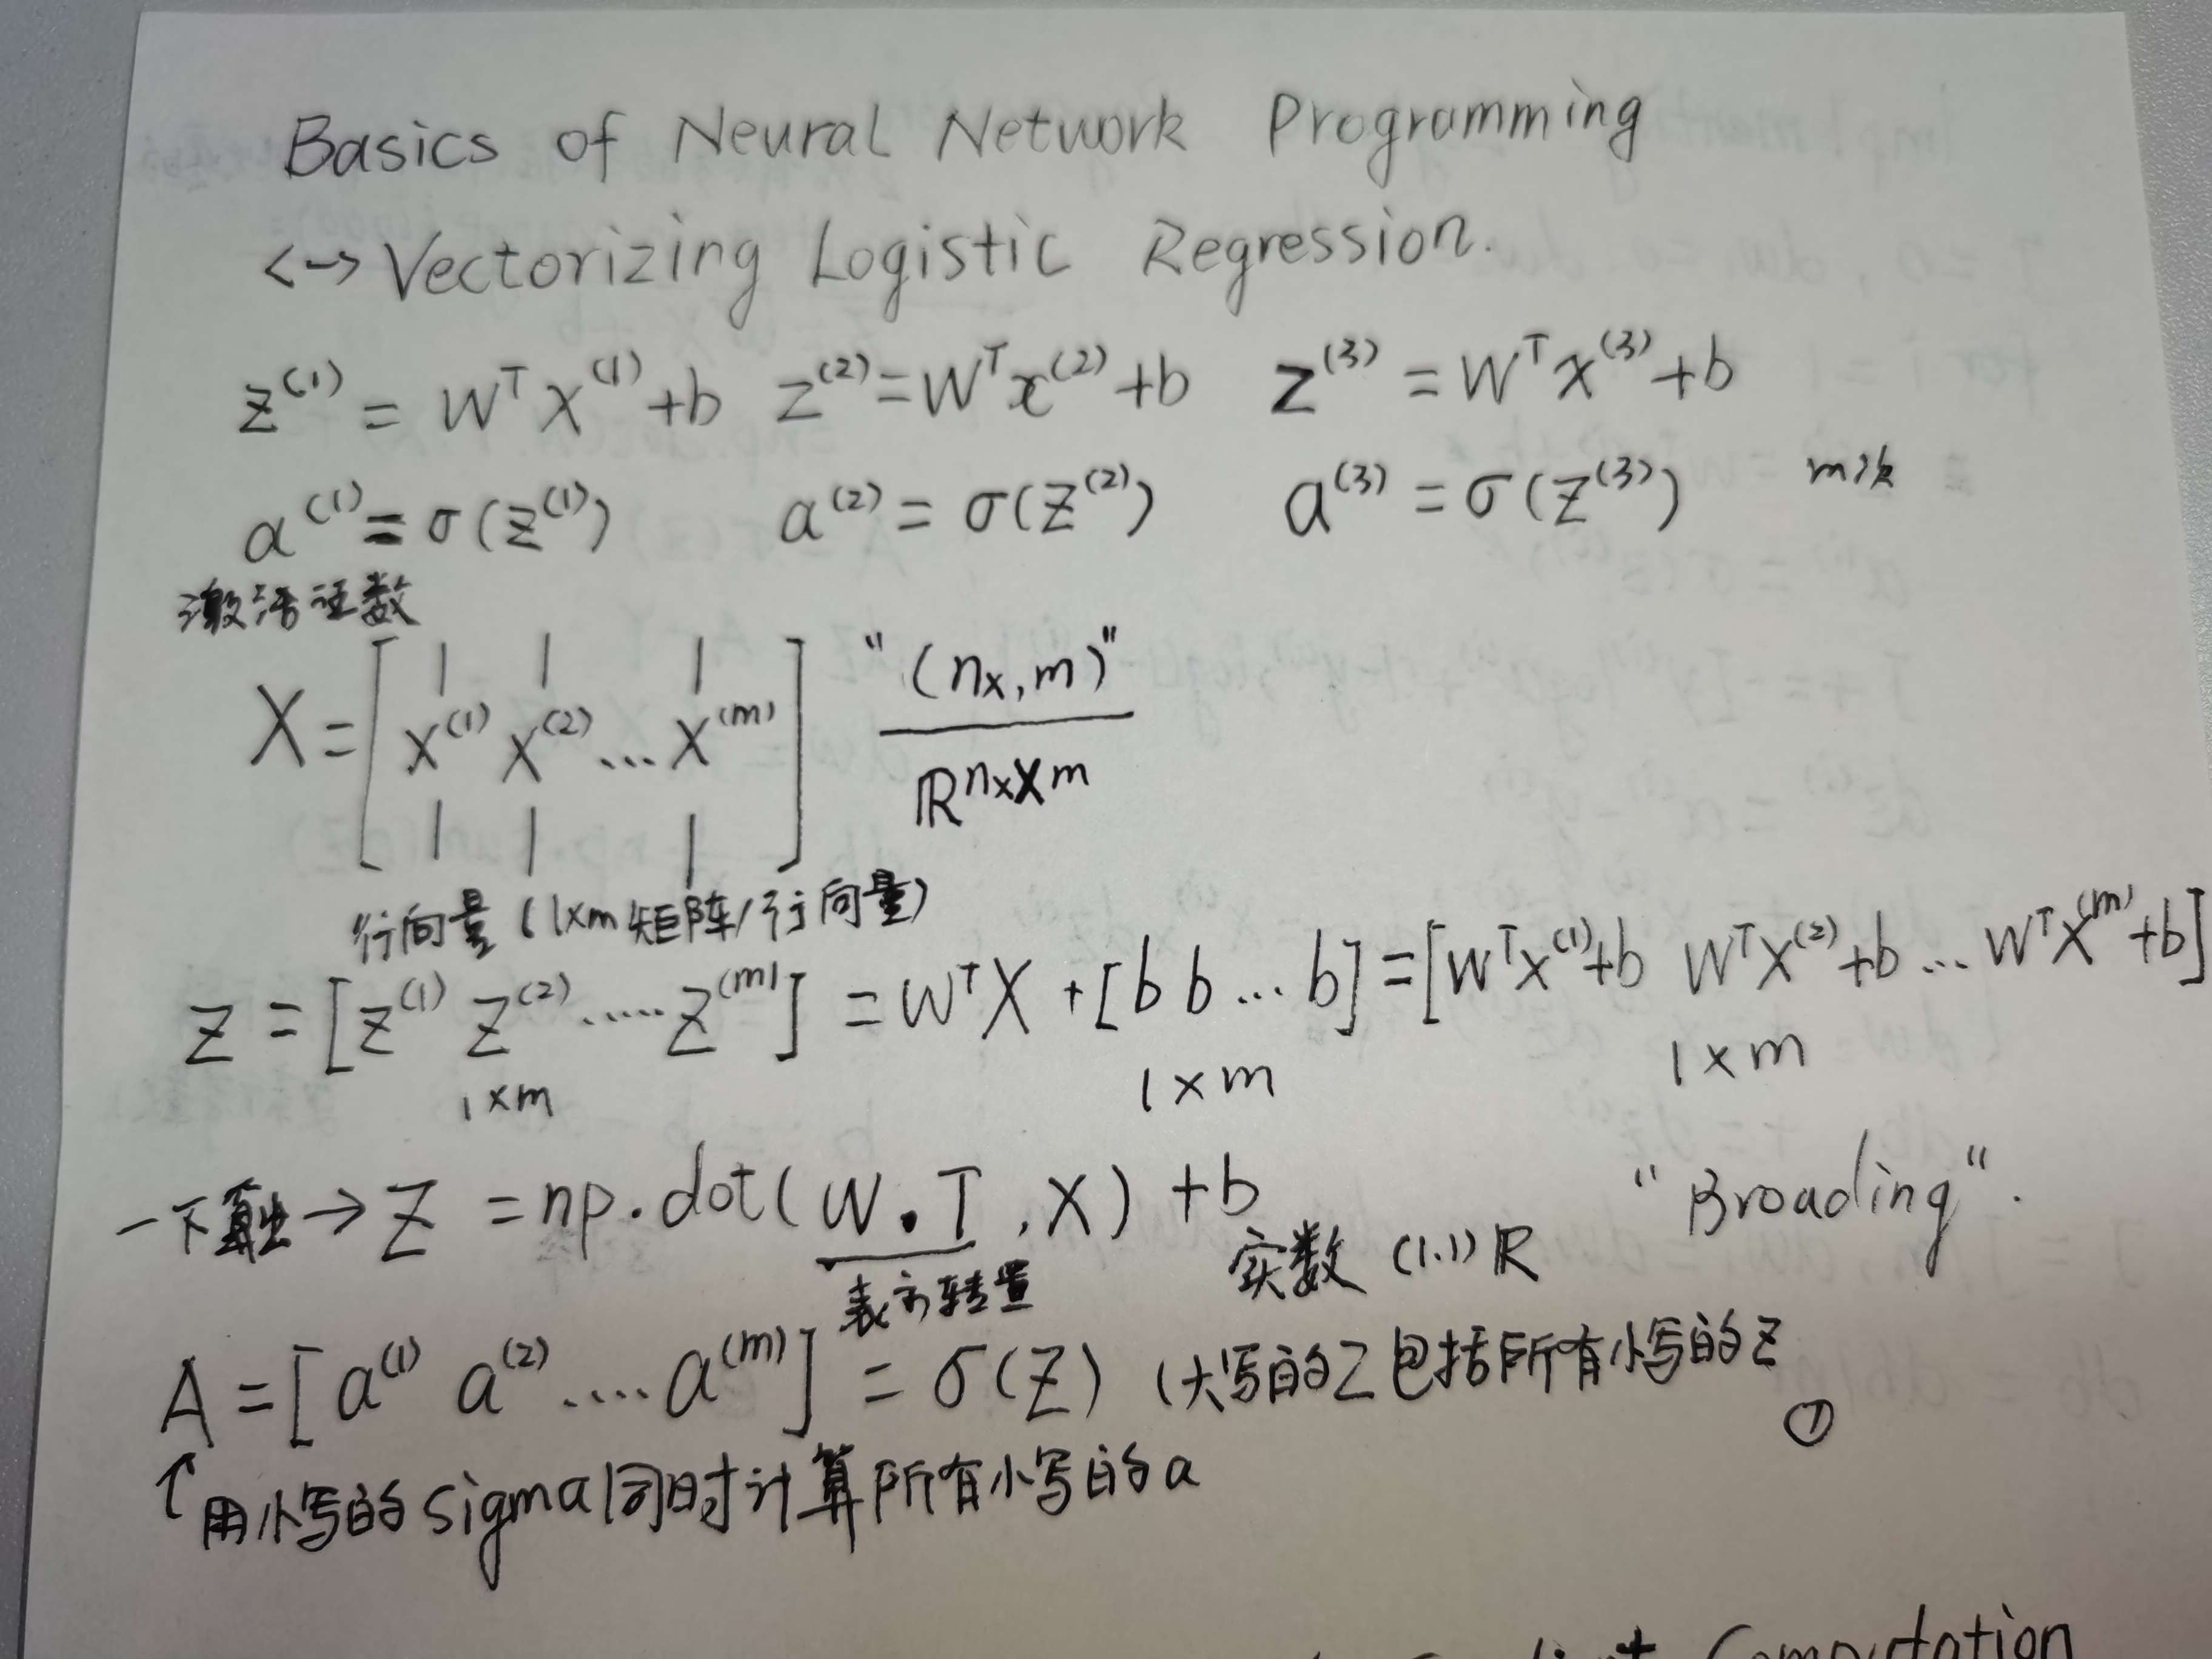 Basics of Neural Network Programming
<-> Vectorizing Logistic Regression.
z⁽¹⁾ = Wᵀ X⁽¹⁾ + b z⁽²⁾ = Wᵀ x⁽²⁾ + b z⁽³⁾ = Wᵀ x⁽³⁾ + b
a⁽¹⁾ = σ(z⁽¹⁾) a⁽²⁾ = σ(z⁽²⁾) a⁽³⁾ = σ(z⁽³⁾) m次
激活函数
X = [ x⁽¹⁾ x⁽²⁾ ... x⁽ᵐ⁾ ] "(nx, m)"
ℝ^(nx×m)
行向量 (1×m矩阵/行向量)
Z = [z⁽¹⁾ z⁽²⁾ ..... z⁽ᵐ⁾] = WᵀX + [b b ... b] = [Wᵀx⁽¹⁾+b WᵀX⁽²⁾+b ... WᵀX⁽ᵐ⁾+b]
1×m 1×m 1×m
一下算出 → Z = np.dot(W.T, X) + b "Broading".
表示转置 实数 (1.1) ℝ
A = [a⁽¹⁾ a⁽²⁾ .... a⁽ᵐ⁾] = σ(Z) (大写的Z包括所有小写的z
①
↑用小写的sigma同时计算所有小写的a
Computation